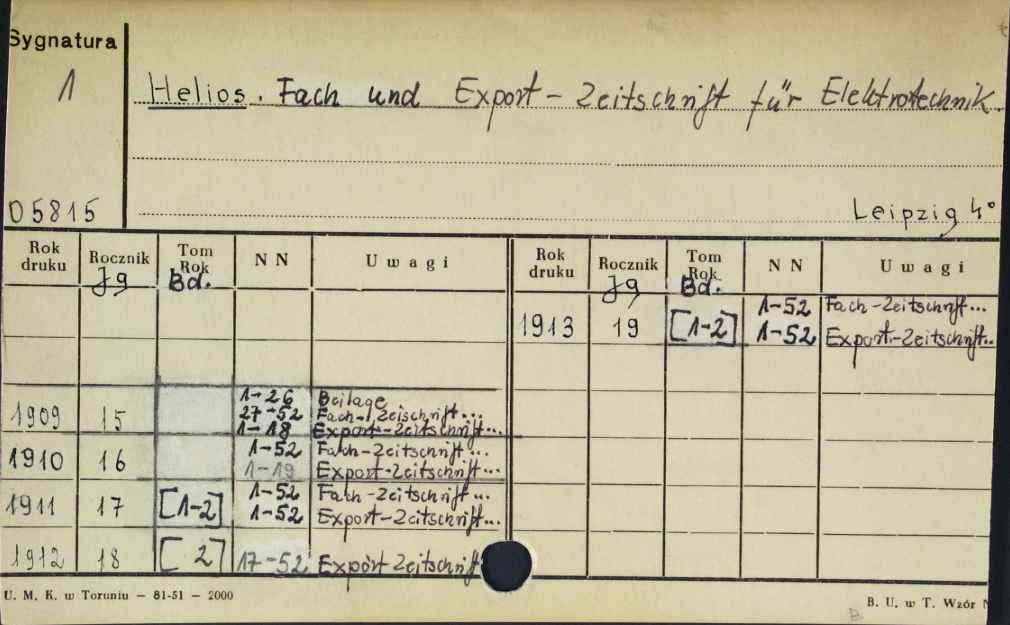 Sygnatura
1
Helios. Fach und Export-Zeitschrift für Elektrotechnik.
D5815
Leipzig 4°
Rok druku Rocznik Tom Rok N N Uwagi Rok druku Rocznik Tom Rok N N Uwagi
Jg Bd. Jg Bd.
1-52 Fach-Zeitschrift...
1913 19 [1-2] 1-52 Export-Zeitschrift...
1-26 Beilage
1909 15 27-52 Fach-Zeischrift...
1-18 Export-Zeitschrift...
1910 16 1-52 Fach-Zeitschrift...
1-19 Export-Zeitschrift...
1911 17 [1-2] 1-52 Fach-Zeitschrift...
1-52 Export-Zeitschrift...
1912 18 [ 2] 17-52 Export Zeitschrift
U. M. K. w Toruniu - 81-51 - 2000
B. U. w T. Wzór
B